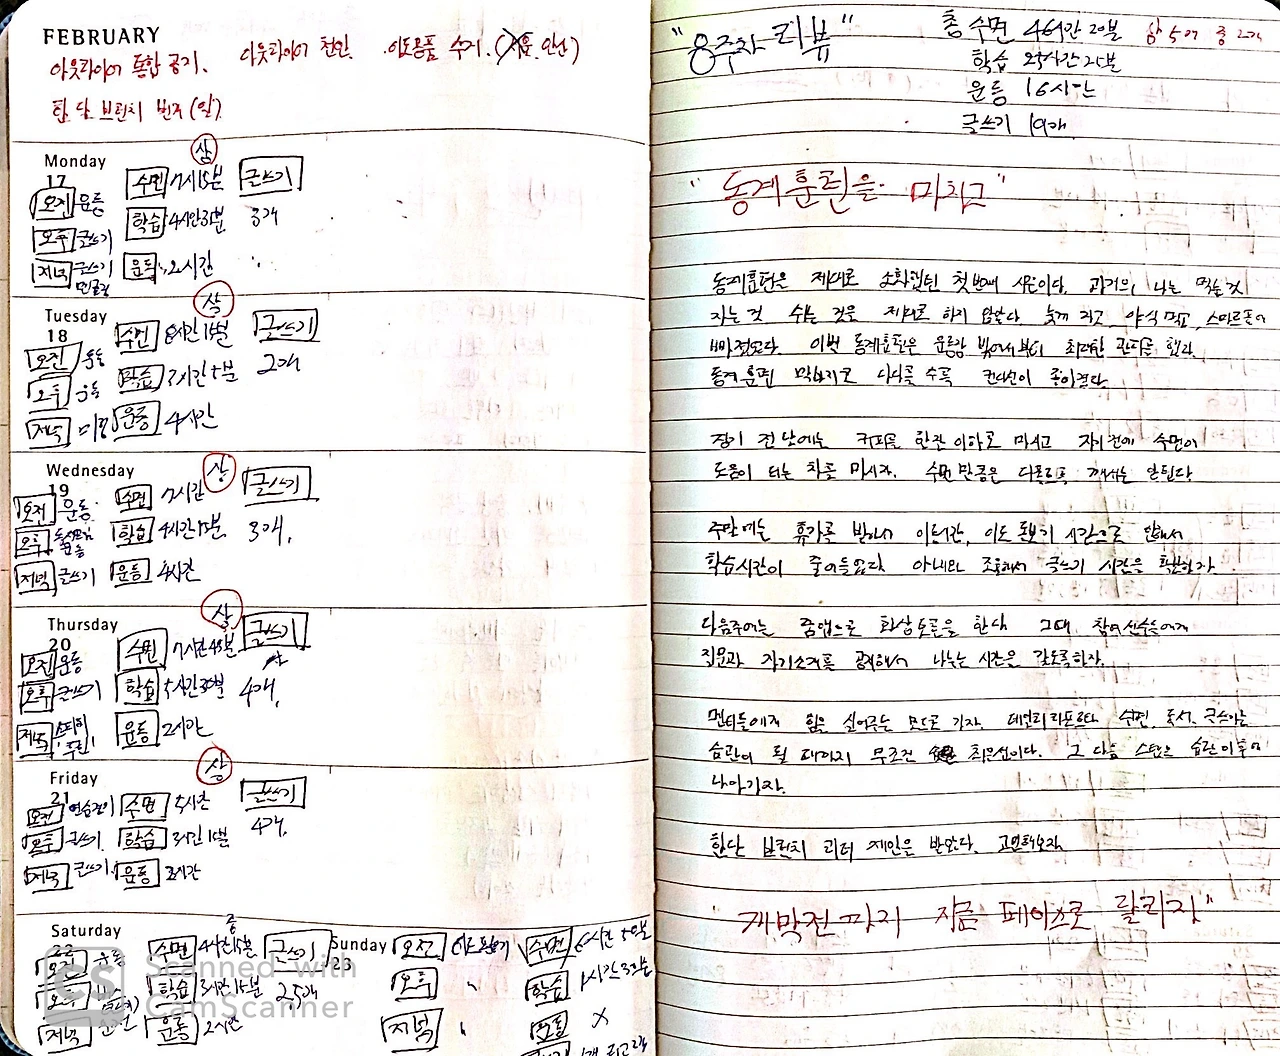 FEBRUARY
아웃라이어 통합 공지. 아웃라이어 천안. 이도용품 수거.
한 달 브런치 번주 (일)
Monday
17
상
오전 운동
오후 글쓰기
저녁 글쓰기
수면 7시15분
학습 4시간
운동 2시간
글쓰기
3개
Tuesday
18
상
오전 운동
오후 운동
저녁
수면 8시간 15분
학습 3시간 5분
운동 4시간
글쓰기
2개
Wednesday
19
상
오전 운동
오후
저녁 글쓰기
수면 7시간
학습 4시간 15분
운동 4시간
글쓰기
3개.
Thursday
20
상
오전 운동
오후 글쓰기
저녁
수면 7시간 45분
학습 5시간 30분
운동 2시간
글쓰기
4개.
Friday
21
상
오전 연습경기
오후 글쓰기
저녁 글쓰기.
수면 5시간
학습 3시간 15분
운동
글쓰기
4개.
Saturday
22
중
오전 운동
오후
저녁
수면 4시간 15분
학습 3시간 15분
운동 2시간
글쓰기
Sunday
23
오전 이도돌보기
오후 "
저녁 "
수면 6시간 50분
학습 1시간
운동 X
CS Scanned with
CamScanner
"8주차 리뷰"
총 수면 46시간 20분 상 5개 중 2개
학습 25시간 25분
운동 16시간
글쓰기 19개.
"동계훈련을 마치고"
동계훈련은 제대로 소화했던 첫번째 시즌이다. 과거의 나는 먹는 것
자는 것 쉬는 것을 제대로 하지 않았다. 늦게 자고, 야식 먹고, 스마트폰에
빠져있었다. 이번 동계훈련은 운동장 밖에서부터 최대한 관리를 했다.
동계훈련 막바지로 다다를 수록 컨디션이 좋아졌다.
경기 전날에는 커피를 한잔 이하로 마시고 자기전에 수면에
도움이 되는 차를 마시자. 수면 만큼은 다른르틴 깨서는 안된다.
주말에는 휴가를 받아서 이동시간, 이도 돌보기 시간으로 인해서
학습시간이 줄어들었다. 아내와 조율해서 글쓰기 시간을 확보하자.
다음주에는 줌앱으로 화상토론을 한다. 그때 참여선수들에게
질문과 자기소개를 공개해서 나누는 시간을 갖도록하자.
멘티들에게 힘을 실어주는 모드로 가자. 데일리리포트와 수면, 독서, 글쓰기는
습관이 될 때까지 무조건 최우선이다. 그 다음 스텝은 습관 이후에
나아가자.
한달 브런치 리더 제안을 받았다. 고민해보자.
"개막전까지 지금 페이스로 달리자"